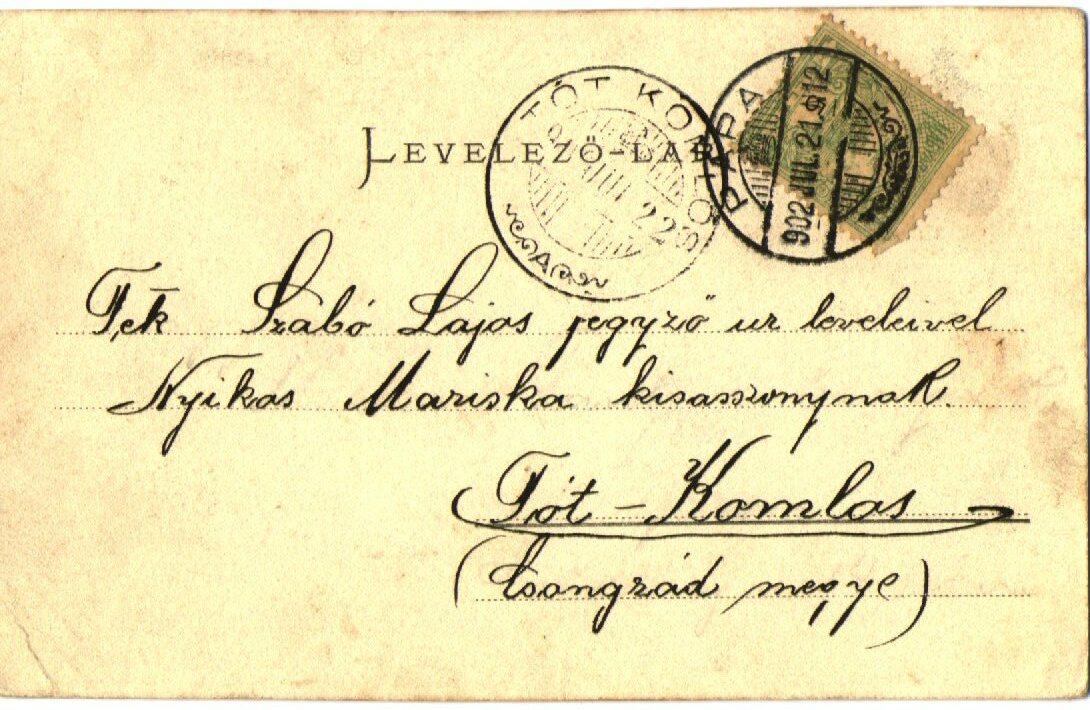 LEVELEZŐ-LAP
TÓT KOMLÓS
902 JUL 22
A
PÁPA
902 JUL. 21. 12
Tek Szabó Lajos jegyző ur leveleivel
Nyikos Mariska kisasszonynak
Tót-Komlos
(Csongrád megye)